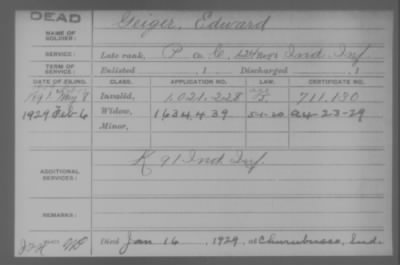 DEAD
NAME OF SOLDIER: Geiger, Edward
SERVICE: Late rank, P Co. C, 124 Ind. Inf.
TERM OF SERVICE: Enlisted , 1 Discharged , 1
DATE OF FILING. CLASS. APPLICATION NO. LAW. CERTIFICATE NO.
1891 May 9 Invalid, 1,021,228 711,130
1929 Feb 6 Widow, 1634439 5-1-20 A4-23-29
Minor,
ADDITIONAL SERVICES: K 91 Ind Inf
REMARKS:
Died Jan 16, 1929, at Churubusco, Ind.